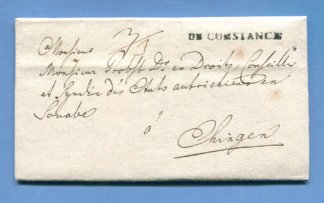 DE CONSTANCE
a Monsieur
Monsieur Probst Dr en Droits, Conseiller
et Syndic des Etats autrichiens en
Souabe
à
Ehingen